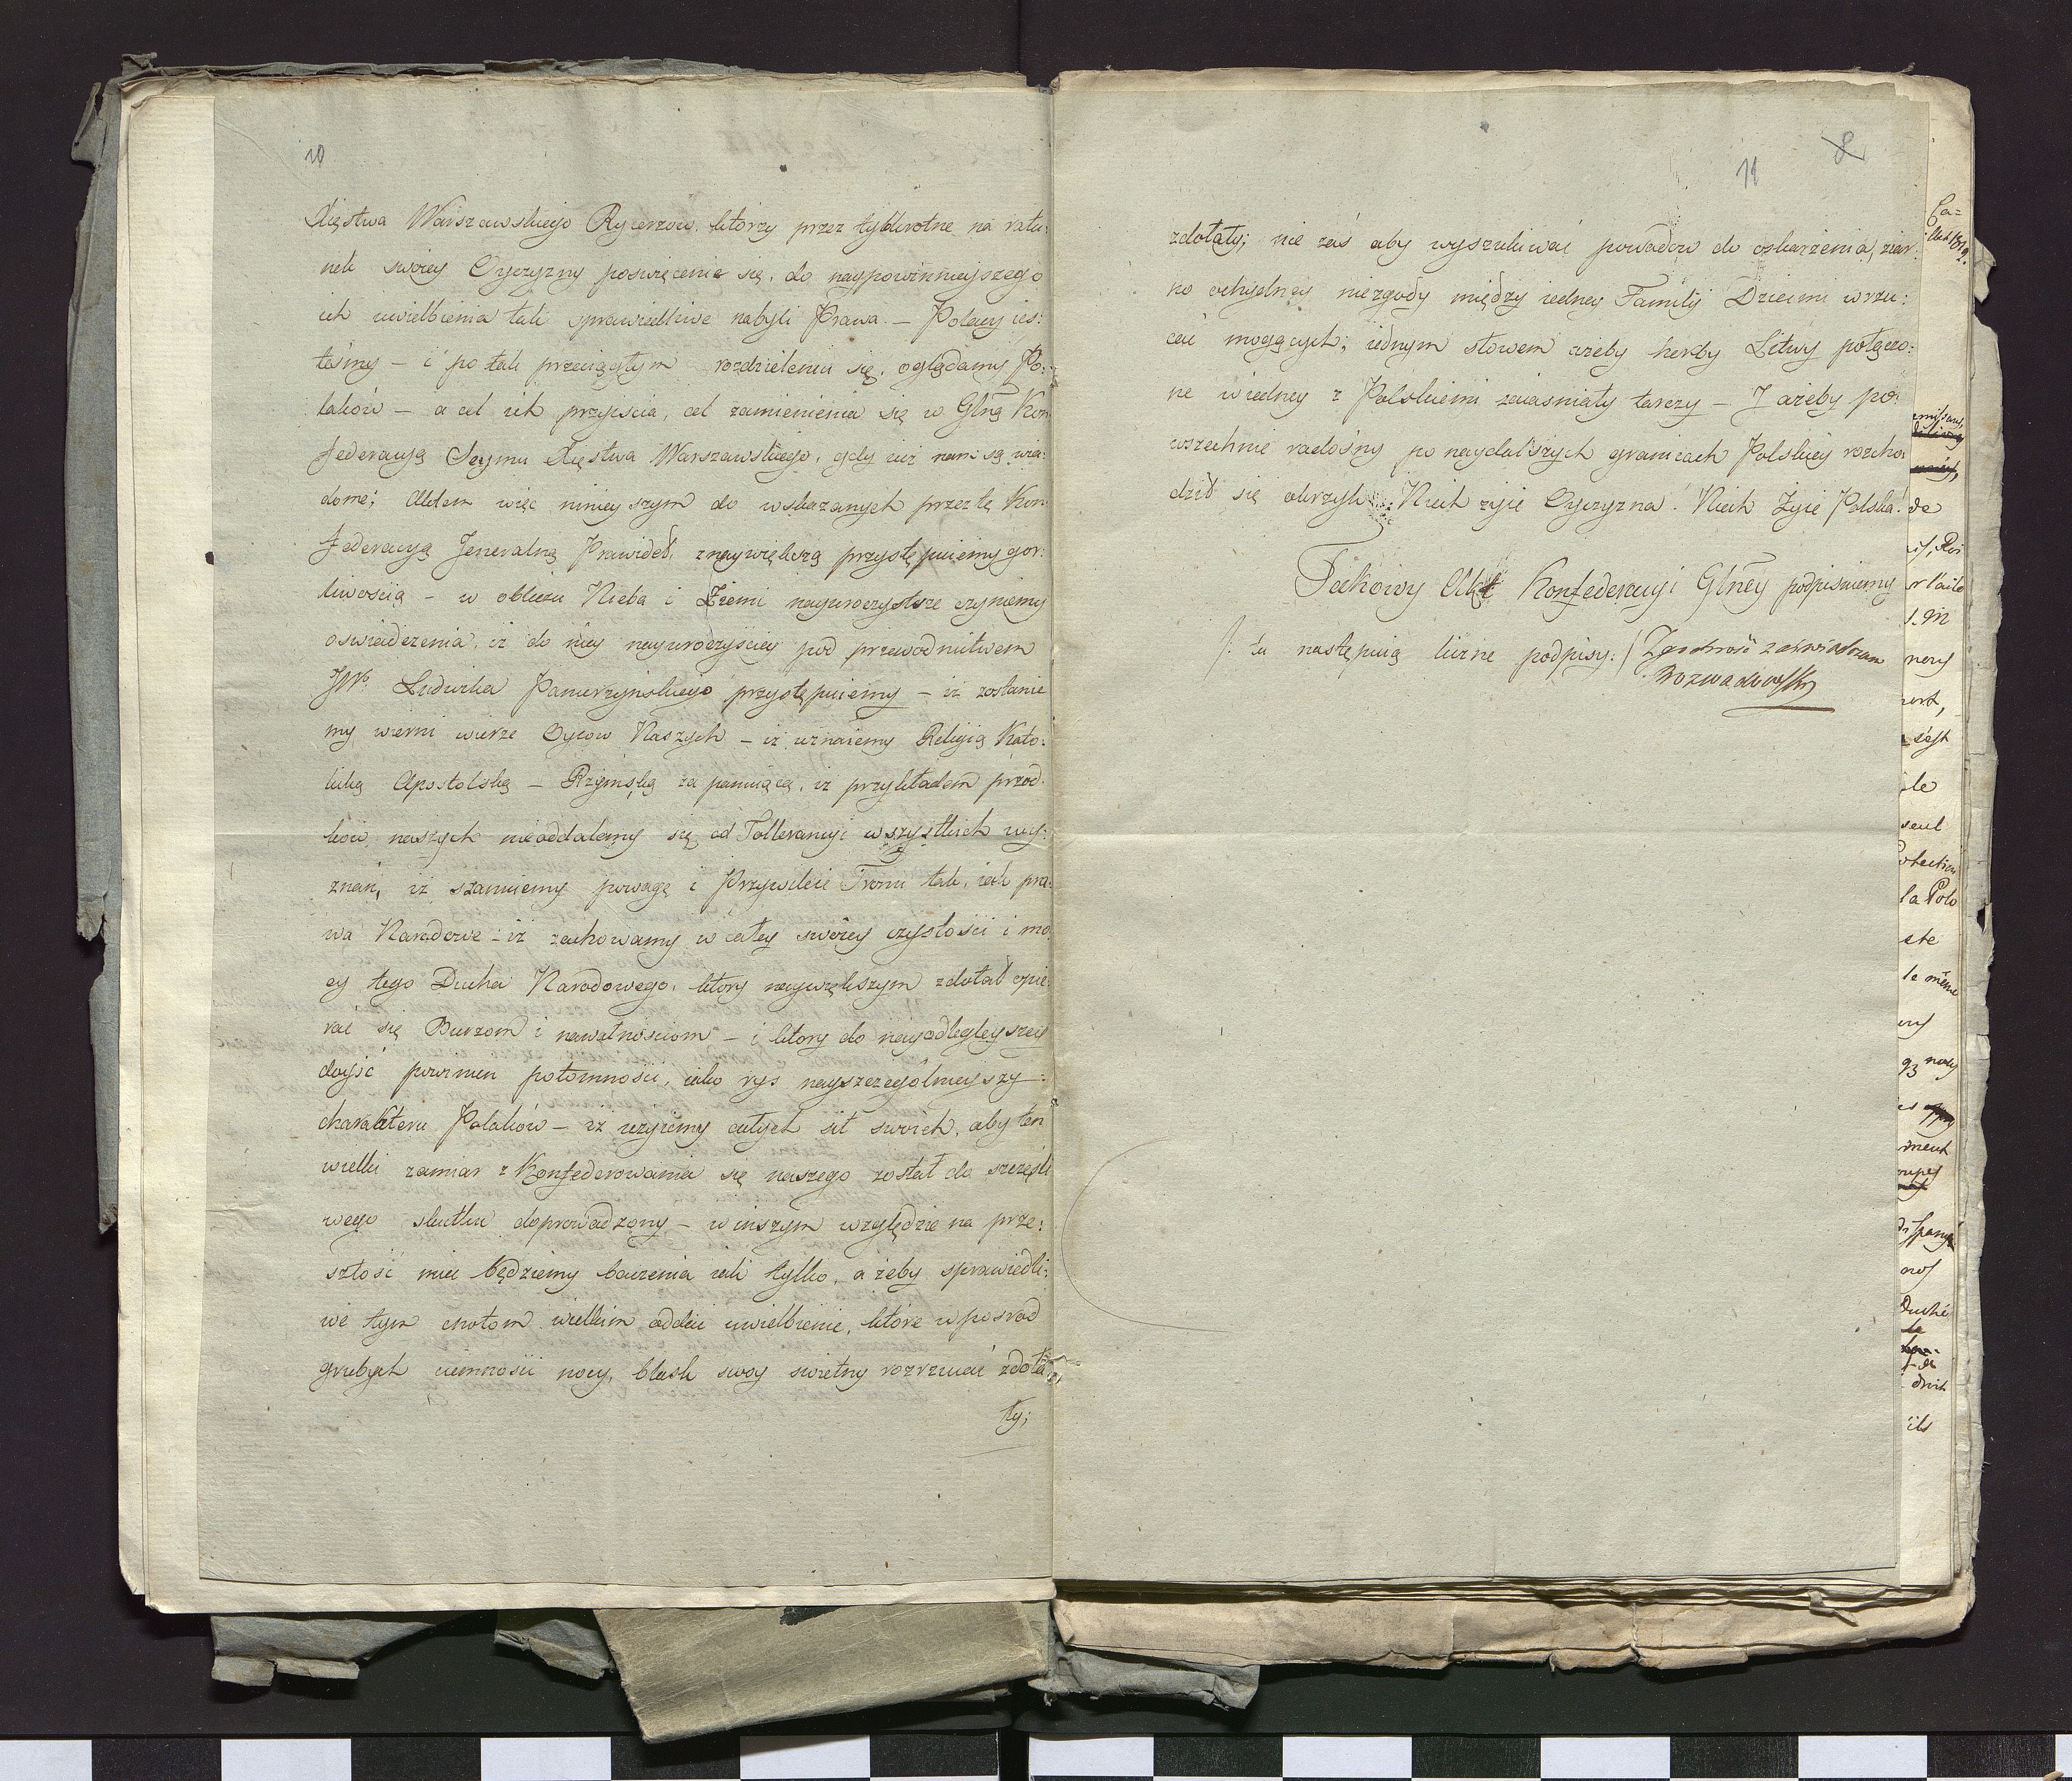 10
Xięstwa Warszawskiego Rycerzow, ktorzy przez tylokrotne na ratu:
nek swoiey Oyczyzny poswięcenie się, do naypowinnieyszego
ich uwielbienia tak sprawiedliwe nabyli Prawa. – Polacy ies:
teśmy – i po tak przeciągłym rozdzieleniu się, oglądamy Po:
laków – a cel ich przyiscia, cel zamienienia się w Glną Kon
federacyą Seymu Xięstwa Warszawskiego, gdy iuż nam są wia:
dome; Aktem więc ninieyszym do wskazanych przez tę Kon
federacyą Jeneralną Prawideł, z naywiększą przystępuiemy gor:
liwością – w obliczu Nieba i Ziemi nayuroczystsze czyniemy
oswiadczenia, iż do niey nayuroczyściey pod przewodnictwem
JW. Ludwika Pancerzyńskiego przystępuiemy – iż zostanie
my wierni wierze Oycow Naszych – iż uznaiemy Religią Kato:
licką Apostolską – Rzymską za panuiącą, iż przykładem przod:
kow naszych nieoddalemy się od Tollerancyi wszystkich wy:
znań, iż szanuiemy powagę i Przywileie Tronu tak, iak pra
wa Narodowe – iż zachowamy w całey swoiey czystości i mo
cy tego Ducha Narodowego, ktory naywiększym zdołał opie
rać się Burzom i nawałnościom – i ktory do nayodlegleyszey
doyść powinien potomności, iako rys nayszczególnieyszy
charakteru Polaków – iż użyiemy całych sił swoich, aby ten
wielki zamiar z Konfederowania się naszego został do szczęśli
wego skutku doprowadzony – w inszym względzie na prze:
szłość mieć będziemy baczenia iak tylko, a żeby sprawiedli:
we tym cnotom wielkim oddać uwielbienie, które w posrod
grubych ciemności nocy, blask swoy swietny rozrzucać zdoła
ły;
11
8
zdołały; nie zaś aby wyszukiwać powodow do oskarżenia, ziar:
no ochydney niezgody między iedney Familij Dziecmi wrzu:
cać mogących; iednym słowem ażeby herby Litwy połączo:
ne w iedney z Polskiemi zaiasniały tarczy – J ażeby po
wszechnie radośny po naydalszych granicach Polskiey rozcho
dził się okrzyk: Niech żyie Oyczyzna! Niech Żyie Polska!
Takowy Akt Konfederacyi Glney podpisuiemy
/: tu następuią liczne podpisy: / Zgodność zaświadczam
Rozwadowski